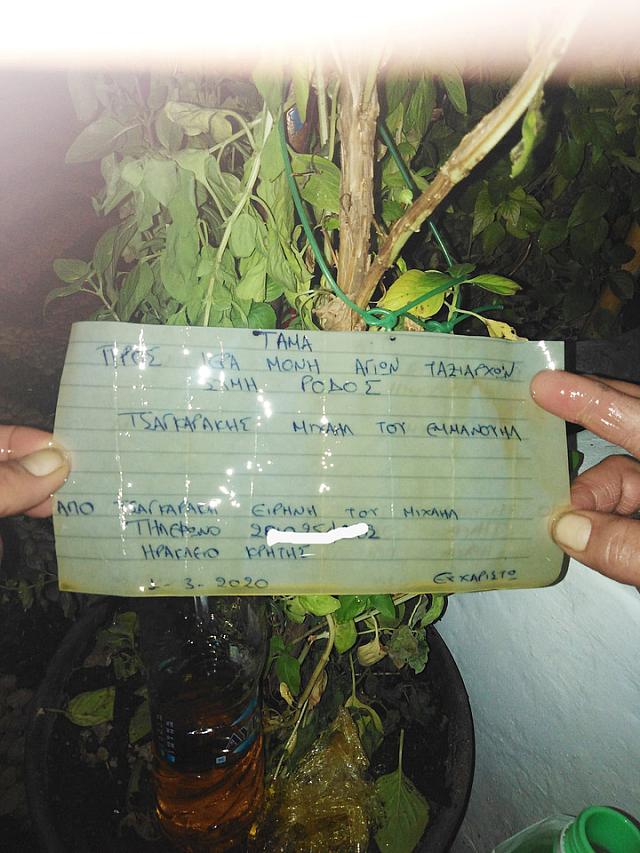 ΤΑΜΑ
ΠΡΟΣ ΙΕΡΑ ΜΟΝΗ ΑΓΙΩΝ ΤΑΞΙΑΡΧΩΝ
ΣΙΜΗ ΡΟΔΟΣ
ΤΣΑΓΚΑΡΑΚΗΣ ΜΙΧΑΗΛ ΤΟΥ ΕΜΜΑΝΟΥΗΛ
ΑΠΟ ΤΣΑΓΚΑΡΑΚΗ ΕΙΡΗΝΗ ΤΟΥ ΜΙΧΑΗΛ
ΤΗΛΕΦΩΝΟ
ΗΡΑΚΛΕΙΟ ΚΡΗΤΗΣ
3-2020
ΕΥΧΑΡΙΣΤΩ